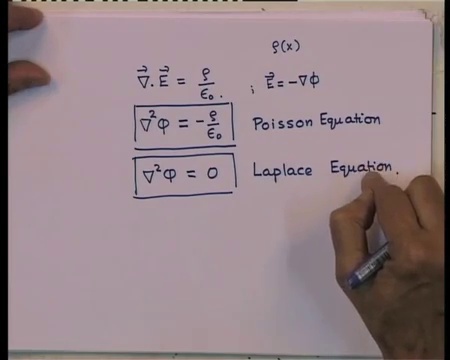 ρ(x)
∇⃗.E⃗ = ρ/ε₀ ; E⃗ = -∇Φ
∇²Φ = -ρ/ε₀ Poisson Equation
∇²Φ = 0 Laplace Equation.